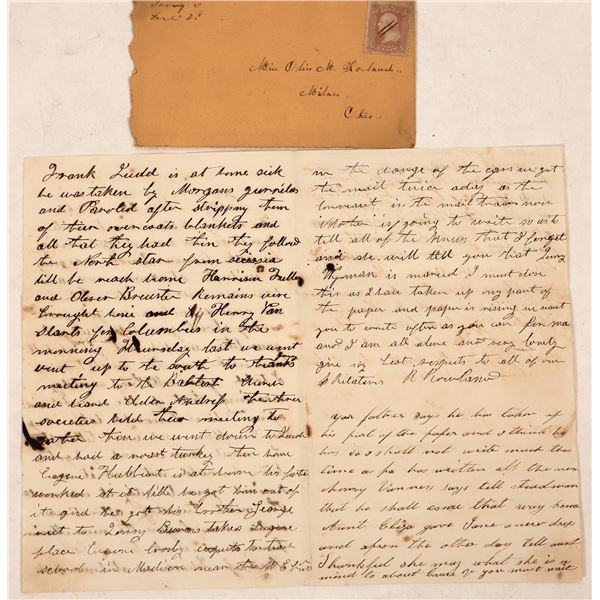 Dec 28
Miss Olis M. Rowland
Milan
Ohio
Frank Judd is at home sick
he was taken by Morgans guerrilas
and Paroled after stripping them
of their overcoats blankets and
all that they had then they followed
the North star from secessia
till he reach home Harrison Fuller
and Oliver Brewster Remains were
brought here and Henry Van
starts for Columbus in the
morning Thursday last we went
went up to the south to thanks
meeting to the Babtist
and heard Elder the three
societies held their meeting to
gather then we went down to Judd
and had a roast turkey then home
Eugene Hubbard is at home his fate
worked at it till he got him out of
it and the got his brother George
went to Burns takes Eugene
place Eugene Crosby expects to teach
school in Madison near the M E
in the change of the cars we get
the mail twice aday as the
is the mail train now
Mother is going to write so wil
tell all of the knews that I forget
and she will tell you that Lucy
Wyman is maried I must close
this as I have taken up my part of
the paper and paper is rising we want
you to write often as you can for ma
and I am all alone and very lonely
give my best respects to all of our
Relatives R Rowland
your father says he has taken up
his part of the paper and I think he
has so I shall not write much this
time as pa has written all the new
Vanness says tell steadman
that he shall come that way home
Aunt Eliza gave Jane a new dress
and apron the other day tell aunt
thankful she may what she is a
mind to about Laura you must wait